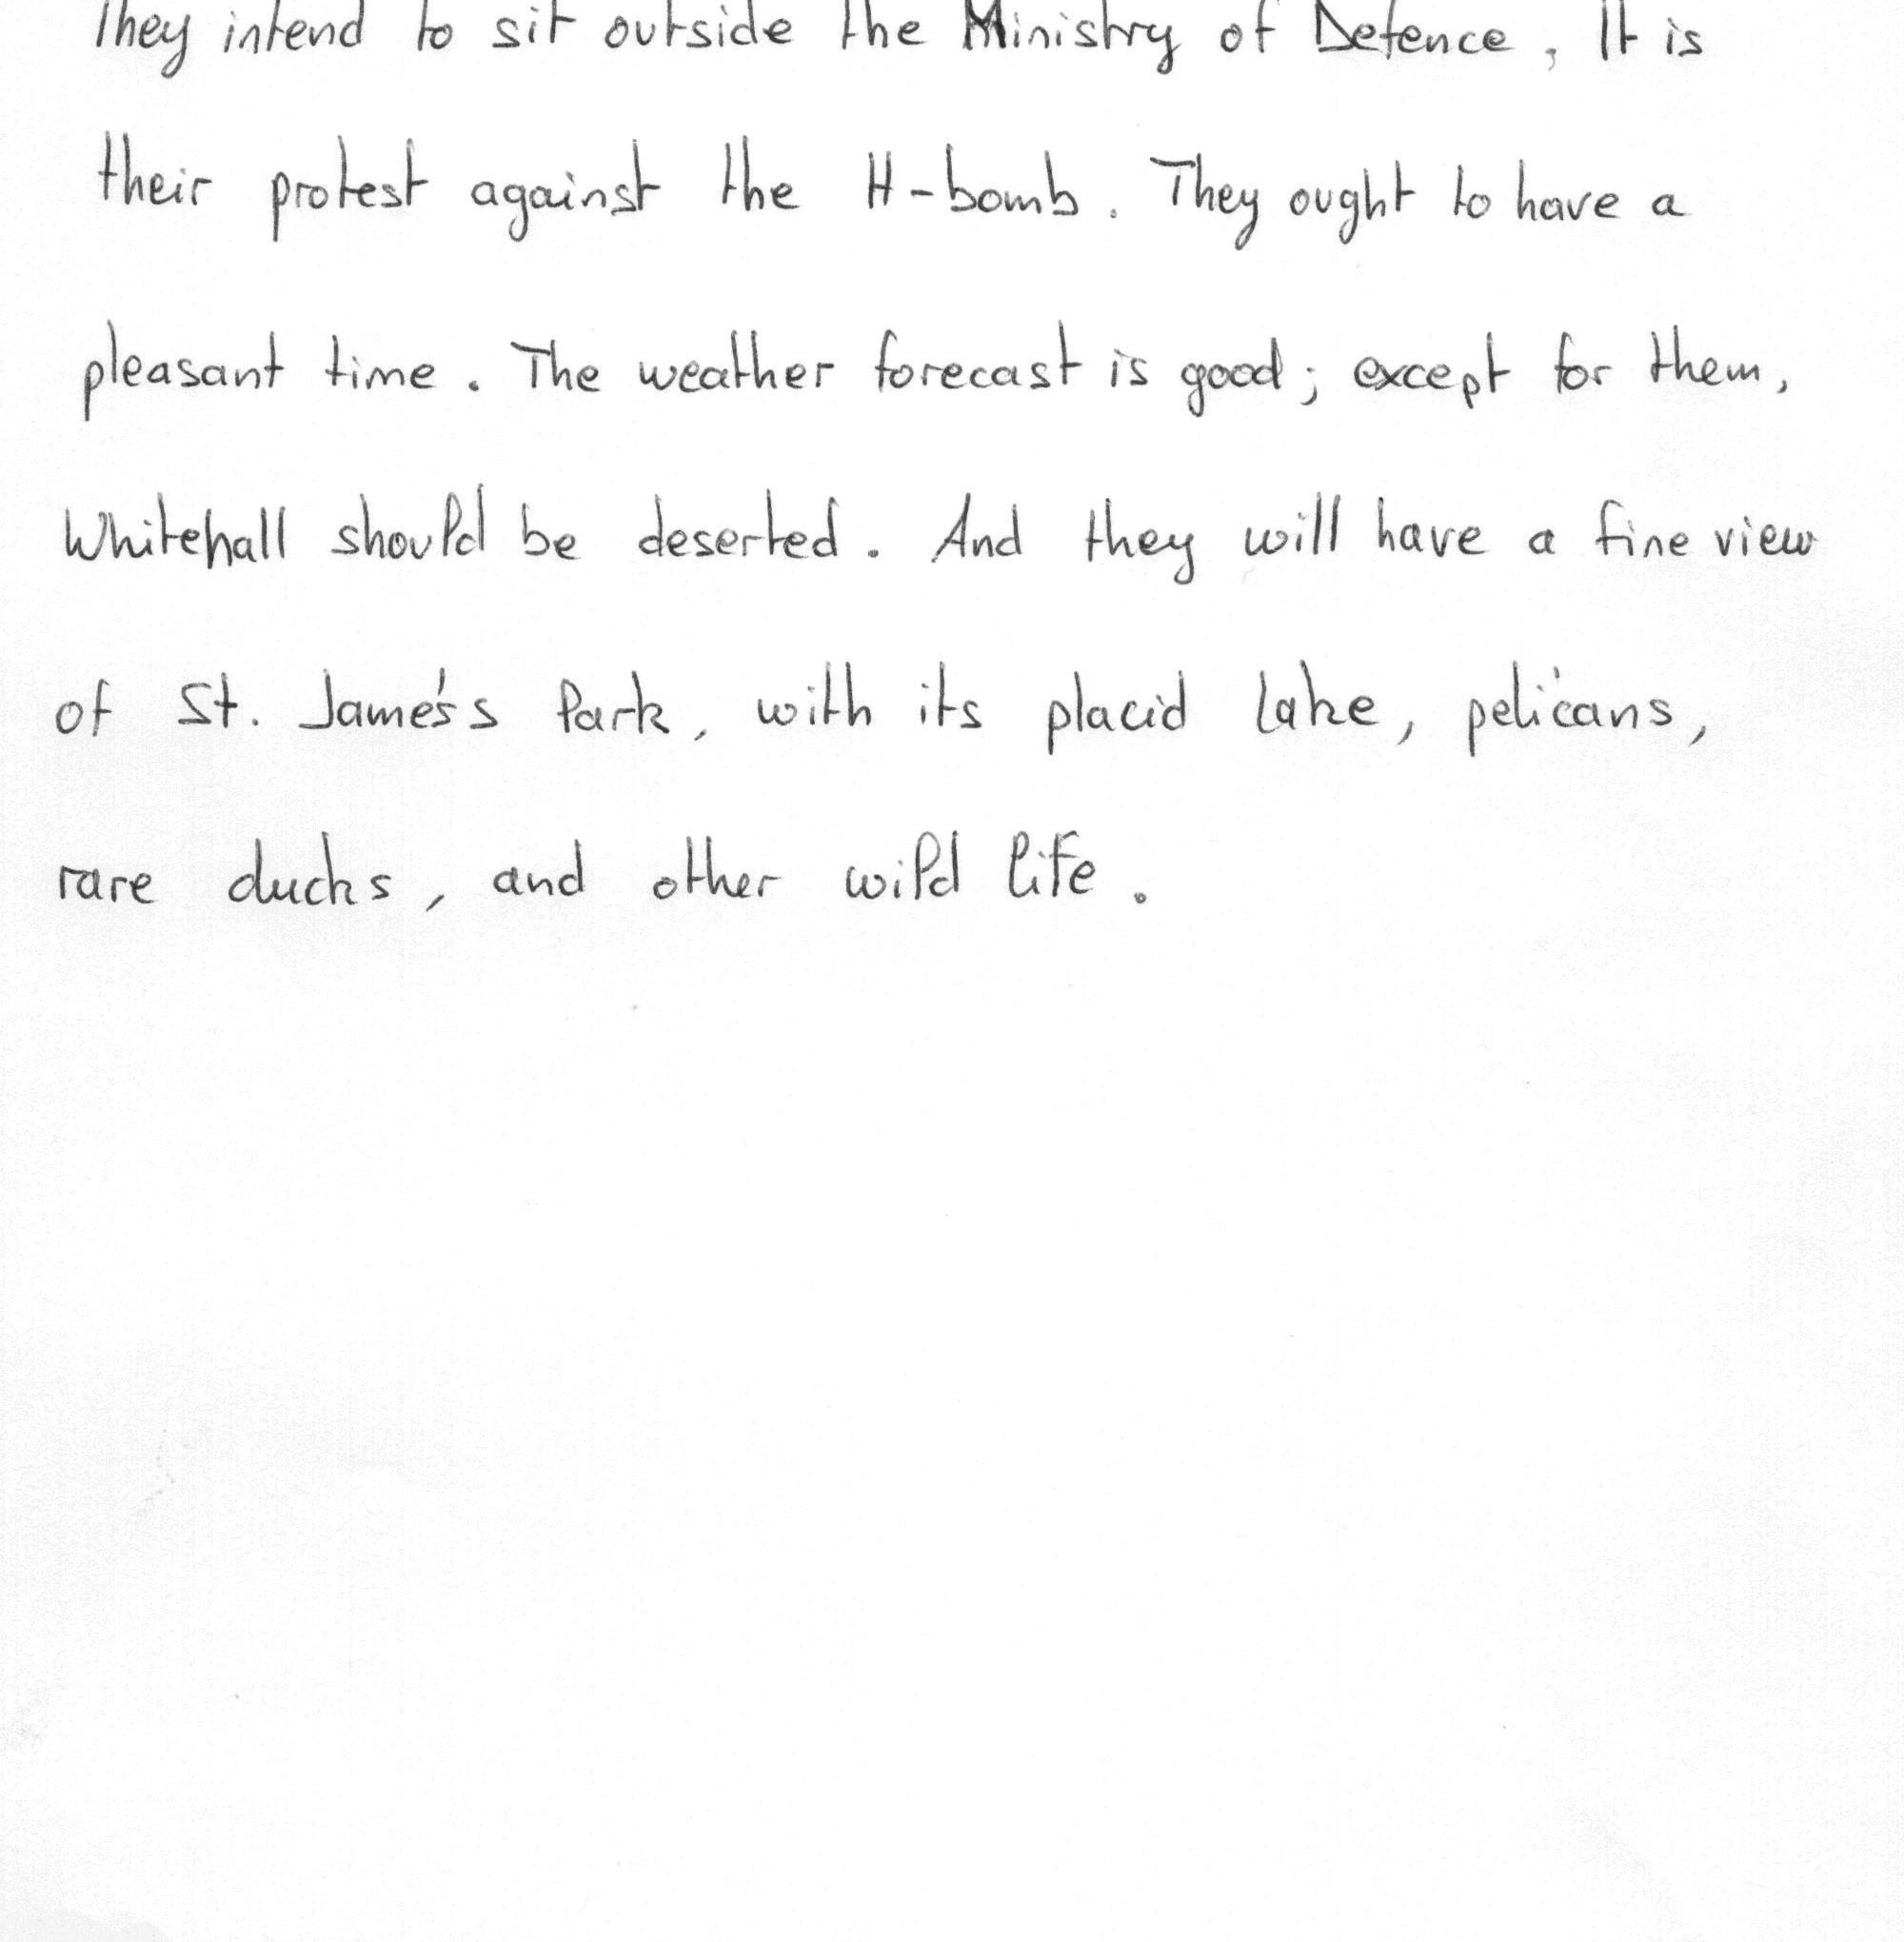 They intend to sit outside the Ministry of Defence. It is
their protest against the H-bomb. They ought to have a
pleasant time. The weather forecast is good; except for them,
Whitehall should be deserted. And they will have a fine view
of St. James's Park, with its placid lake, pelicans,
rare ducks, and other wild life.